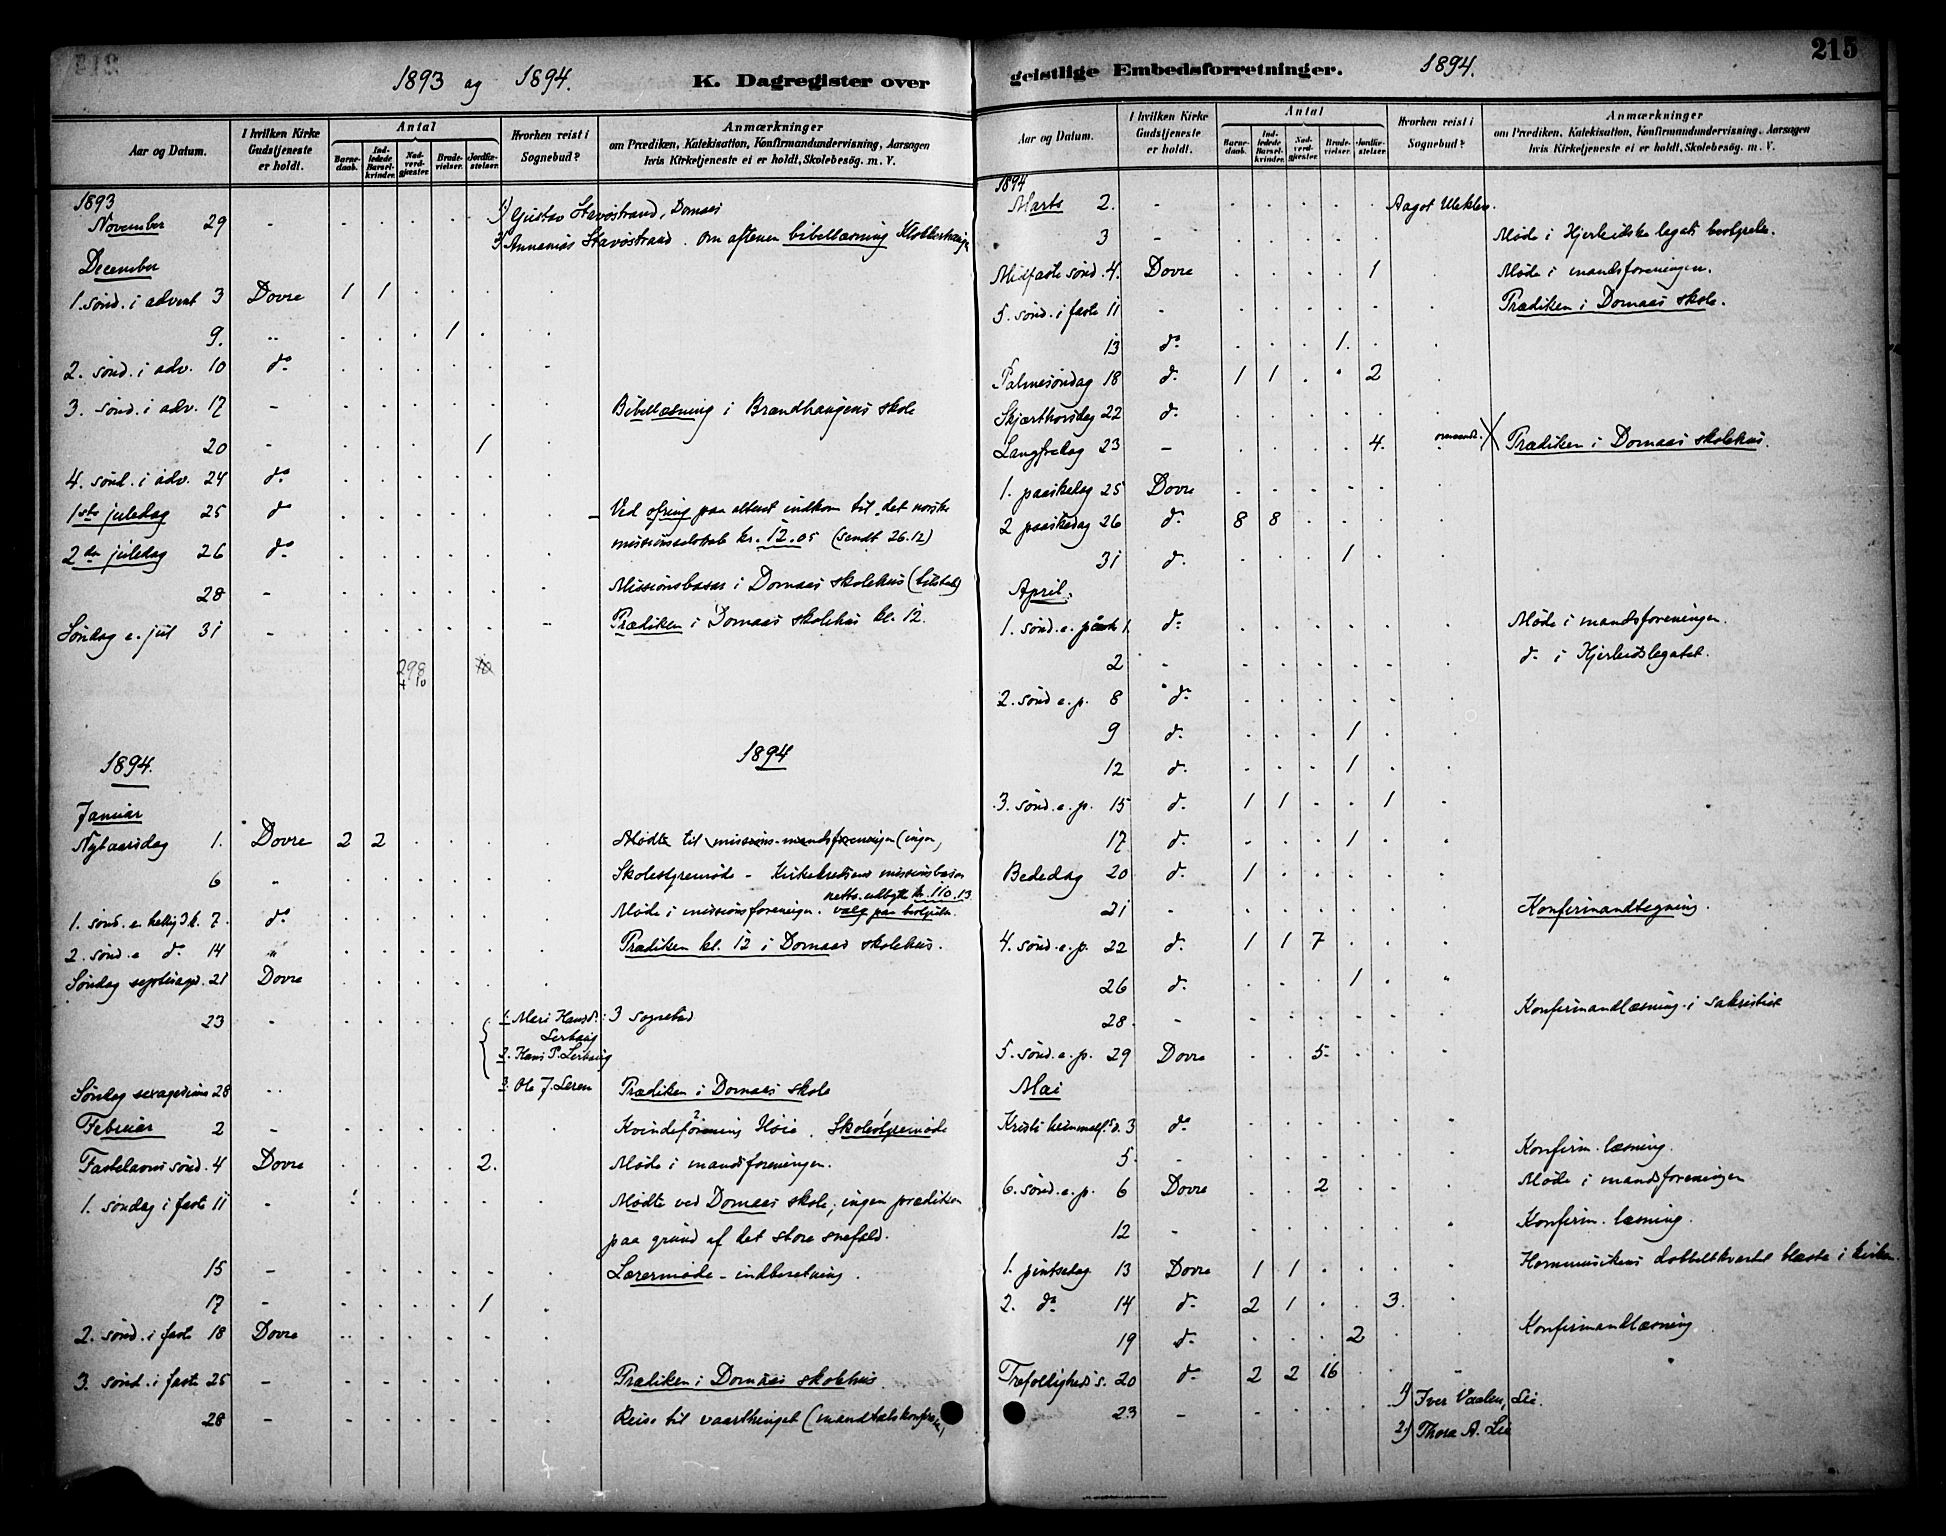 1893 og 1894.
K. Dagregister over
Aar og Datum.
I hvilken Kirke Gudstjeneste er holdt.
Antal
Barne-daab.
Ind-ledede Barsel-kvinder.
Nad-verd-gjæster.
Brude-vielser.
Jordfæ-stelser.
Hvorhen reist i Sognebud?
Anmærkninger
om Prædiken, Katekisation, Konfirmandundervisning, Aarsagen
hvis Kirketjeneste ei er holdt, Skolebesøg. m. V.
1893
November 29 - 1) Gustav Stavøstrand, Domaas
2) Annanias Stavøstrand. Om aftenen bibellæsning
December
1. sønd. i advent 3 Dovre 1 1
9. " 1
2. sønd. i adv. 10 do
3. sønd. i adv. 17 - Bibellæsning i Brændhaugens skole
20 - 1
4. sønd. i adv. 24 do
1ste juledag 25 do Ved ofring paa alteret indkom til det norske
2den juledag 26 do kr. 12.05 (sendt 26.12)
28 - Missionsbasar i Domaas skolehus
Søndag e. jul 31 - Prædiken i Domaas skolehus kl. 12.
298
+ 10
1894. 1894
Januar
Nytaarsdag 1. Dovre 2 2 Mødte til missions-mandsforeningen (ingen)
6 " Skolestyremøde - Kirkekredsens missionsbasar
netto-udbytte kr. 110.13
1. sønd. e. hellig 3 k. 7. do Møde i missionsforeningen. valg paa bestyrelse.
2. sønd. e do 14 " Prædiken kl. 12 i Domaas skolehus.
Søndag septuages. 21 Dovre
23 - 1. Mari Hansd. 3 sognebud
2. Hans P.
3. Ole J. Leren
Søndag sexagesima 28 - Prædiken i Domaas skole
Februar 2 - Kvindeforening Høie. Skolestyremøde
Fastelavns sønd. 4 Dovre 2. Møde i mandsforeningen.
1. søndag i faste 11 - Mødte ved Domaas skole; ingen prædiken
paa grund af det store snefald.
15 - Lærermøde - indberetning.
17 - 1
2. sønd. i faste 18 Dovre
3. sønd. i faste 25 - Prædiken i Domaas skolehus.
28 - Reise til vaarthinget (mandtalskonferen
geistlige Embedsforretninger. 1894. 215
Aar og Datum.
I hvilken Kirke Gudstjeneste er holdt.
Antal
Barne-daab.
Ind-ledede Barsel-kvinder.
Nad-verd-gjæster.
Brude-vielser.
Jordfæ-stelser.
Hvorhen reist i Sognebud?
Anmærkninger
om Prædiken, Katekisation, Konfirmandundervisning, Aarsagen
hvis Kirketjeneste ei er holdt, Skolebesög. m. V.
1894
Marts 2. - Aagot Uleklev.
3 - Møde i Hjerleidske legats bestyrelse.
Midfaste sønd. 4. Dovre 1 Møde i mandsforeningen.
5. sønd. i faste 11 - Prædiken i Domaas skole.
13 do 1.
Palmesøndag 18 do 1 1 2
Skjærthorsdag 22 do
Langfredag 23 - 4. Prædiken i Domaas skolehus.
1. paaskedag 25 Dovre
2 paaskedag 26 do 8 8
31 do 1
April.
1. sønd. e. paaske 1. do Møde i mandsforeningen.
2 - do i Hjerleidslegatet.
2. sønd e. p. 8 do
9 do 1
12 do 1
3. sønd. e. p. 15 do 1 1 1
17 do 1
Bededag 20 do 1
21 - Konfirmandtegning.
4. sønd. e. p. 22 do 1 1 7
26 do 1
28 - Konfirmandlæsning i sakristiet
5. sønd. e. p. 29 Dovre 5
Mai
Kristi himmelf. d. 3 do
5 - Konfirm. læsning.
6. sønd. e. p. 6 Dovre 2 Møde i mandsforeningen
12 - Konfirm. læsning.
1. pintsedag 13 Dovre 1 1 Hornmusikens dobbeltkvartet blæste i kirken
2. do 14 do 2 1 3.
19 do 2 Konfirmandlæsning
Trefoldigheds s. 20 do 2 2 16
23 - 1) Iver Vaalen, Lie.
2) Thora A. Lie